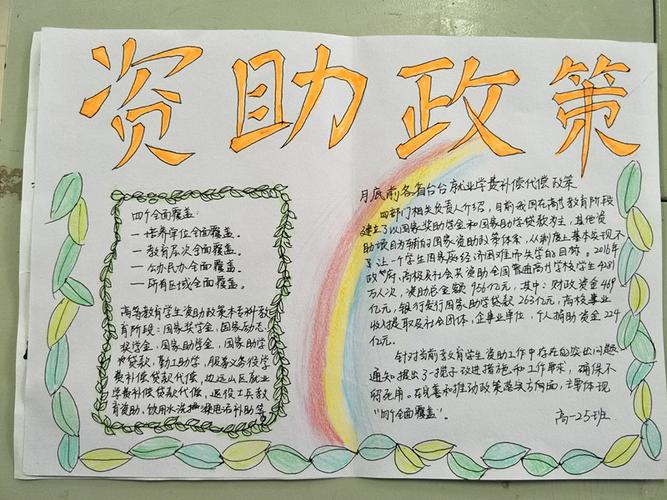 资助政策
四个全面覆盖:
— 培养学位全面覆盖。
— 教育层次全面覆盖。
— 公办民办全面覆盖。
— 所有区域全面覆盖。
高等教育学生资助政策本专科教
育阶段:国家奖学金,国家励志
奖学金,国家助学金,国家助学
贷款,勤工助学,服务义务役学
费补偿贷款代偿,边远山区就业
学费补偿贷款代偿,退役士兵教
育资助,饮用水洗澡电话补助等。
月底前各省台台就业学费补偿代偿政策
四部门相关负责人介绍,目前我国在高等教育阶段
建立了以国家奖助学金和国家助学贷款为主,其他资
助项目为辅的国家资助政策体系,从制度上基本实现不
让一个学生因家庭经济困难而失学的目标。2016年
政府,高校及社会共资助全国普通高等学校学生4281
万人次,资助总金额956亿元,其中:财政资金469
亿元,银行发行国家助学贷款263亿元,高校事业
收入提取及社会团体,企事业单位,个人捐助资金224
亿元。
针对当前教育学生资助工作中存在的突出问题
通知提出了一揽子改进措施和工作要求,确保不
在完善和推动政策落实方面,主要体现
"四个全面覆盖"。
高一25班